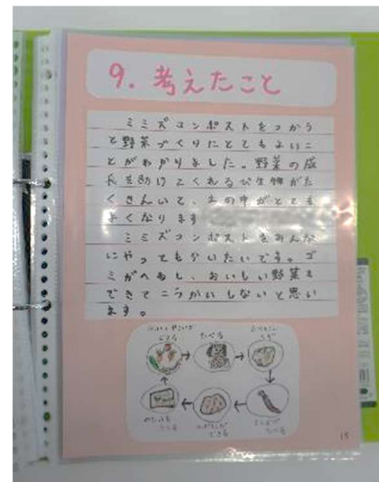 9. 考えたこと
ミミズコンポストをつかう
と野菜づくりにとてもよいこ
とがわかりました。野菜の成
長を助けてくれるび生物がた
くさんいて、土の中がとても
よくなります
ミミズコンポストをみんな
にやってもらいたいです。ゴ
ミがへるし、おいしい野菜も
できてこうかいしないと思い
ます。
たべる